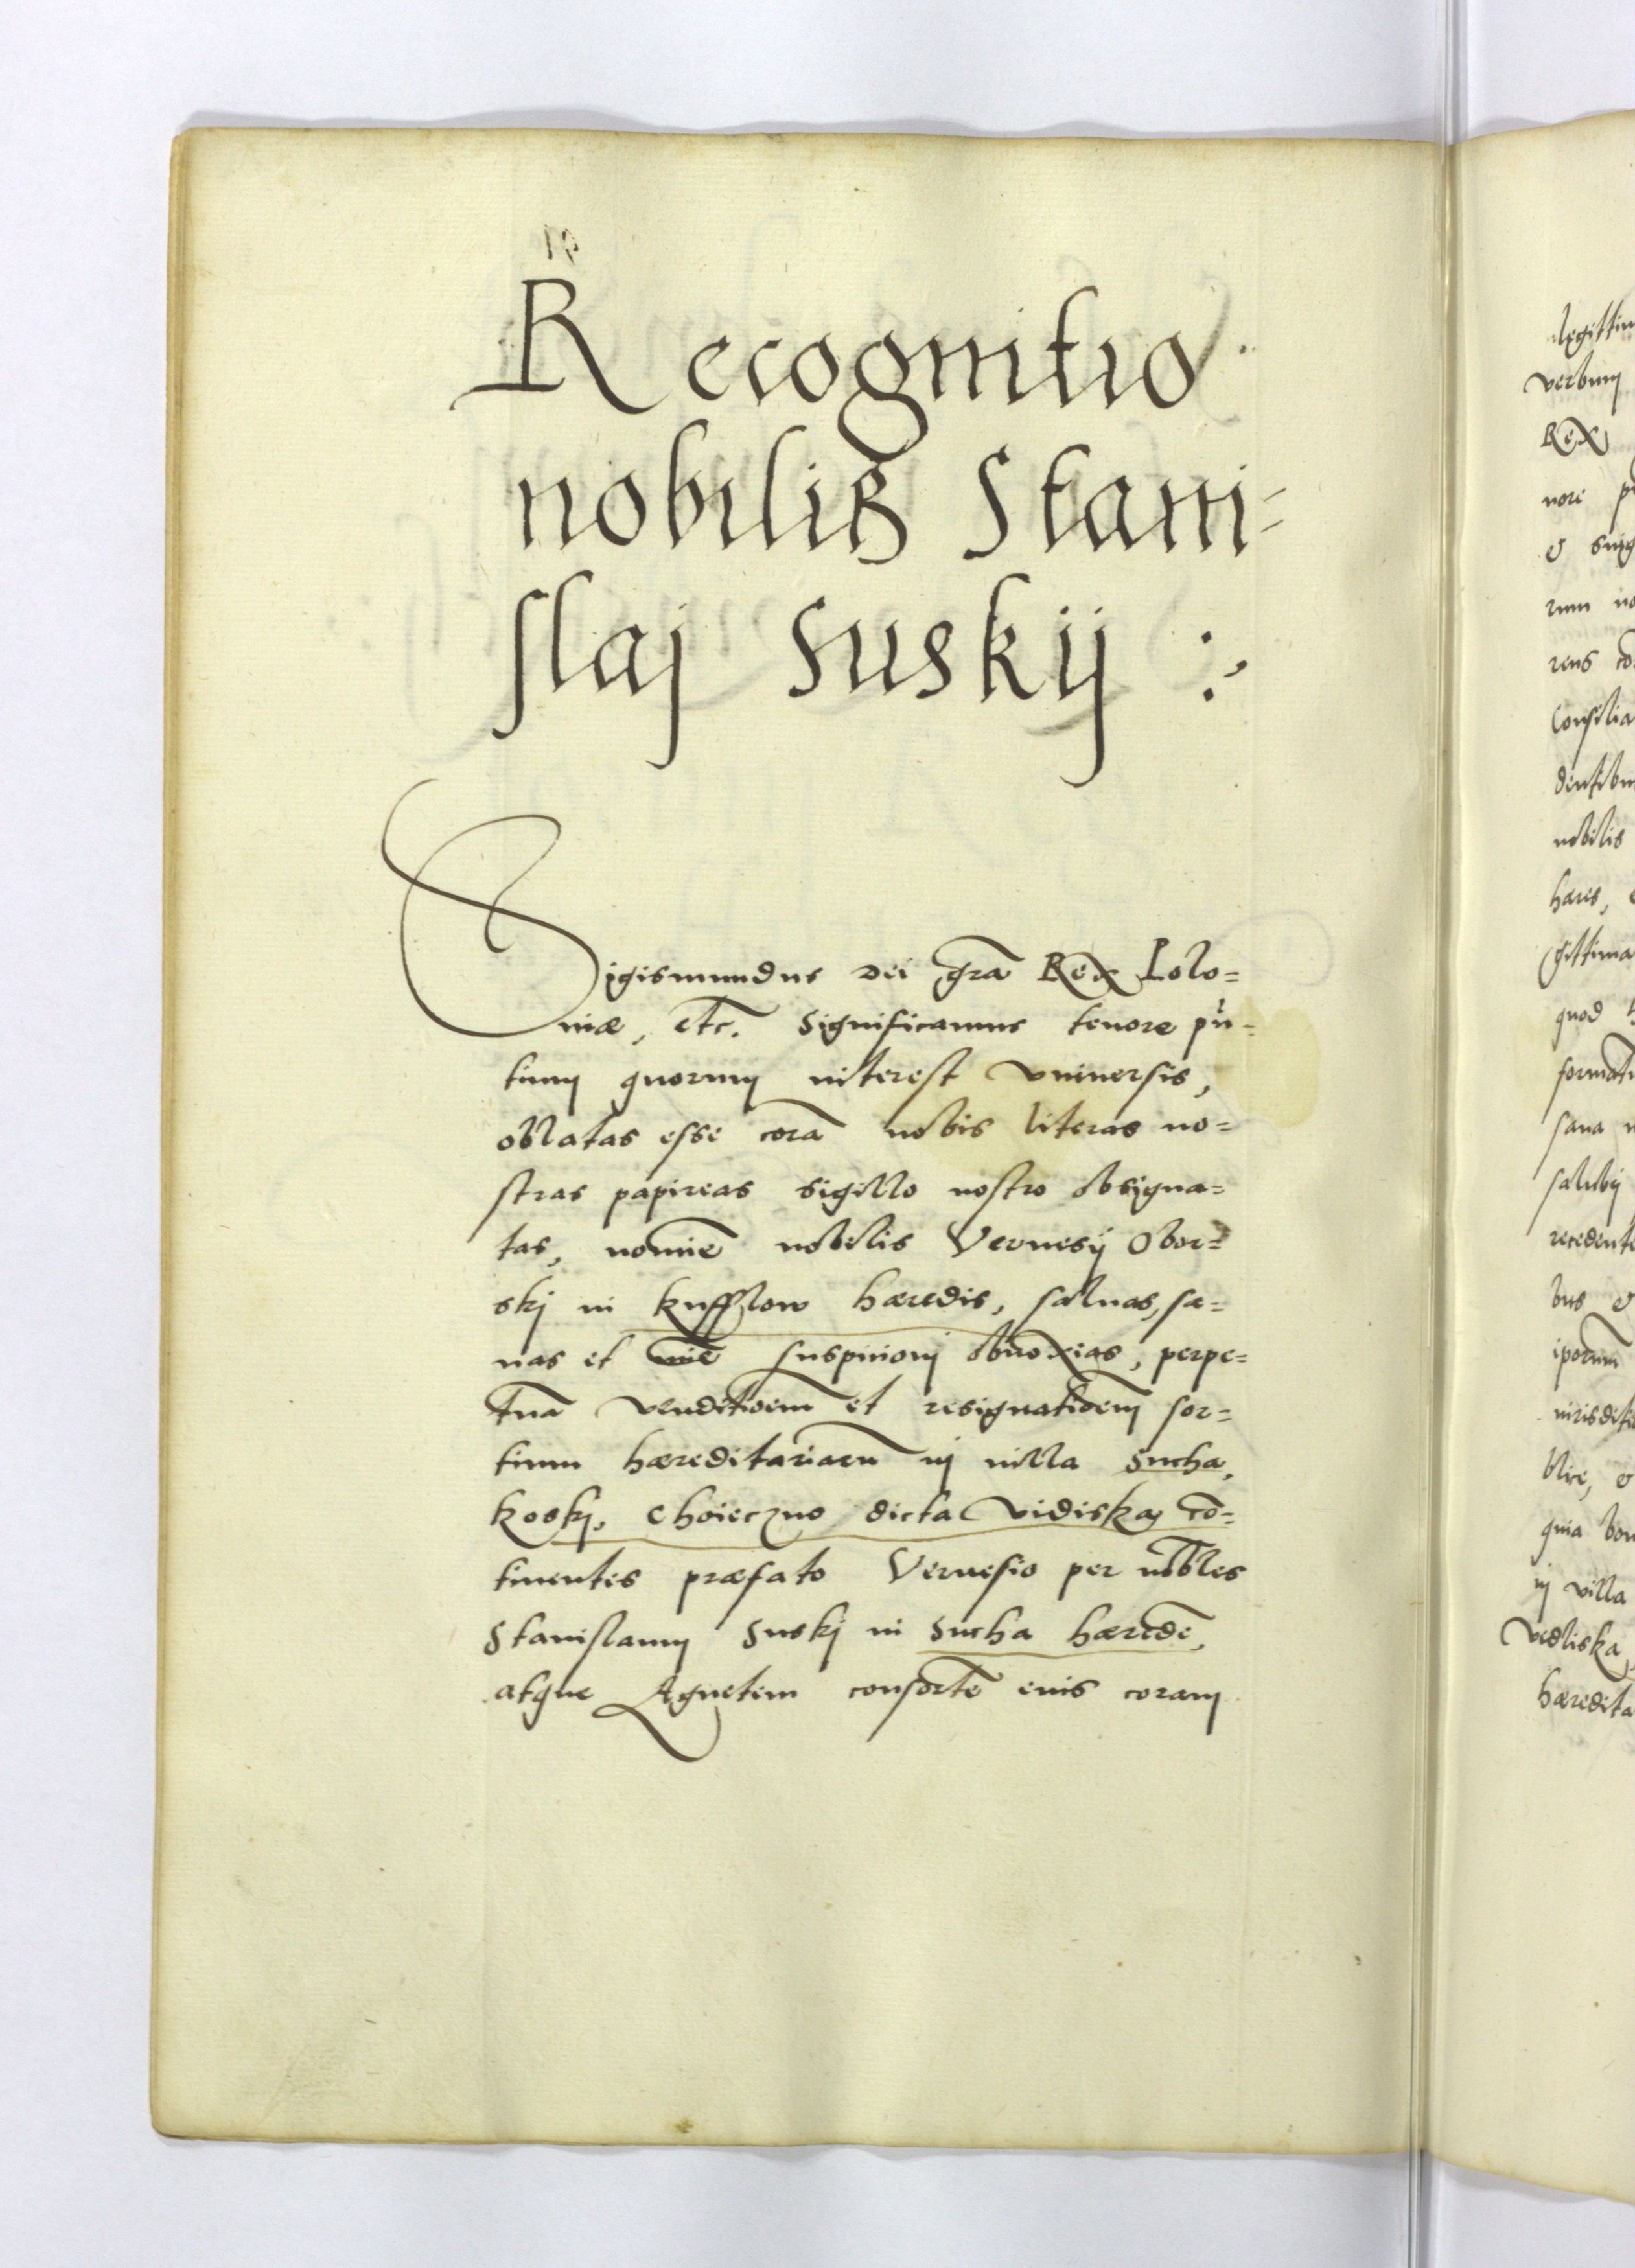 Recognitio
nobilis Stani=
slaj Suskij :
Sigismundus Dei gra Rex Polo=
niæ, etc. Significamus tenore pn̄=
tium quorum interest vniuersis,
oblatas esse corā nobis literas no=
stras papireas sigillo nostro obsigna=
tas, nomīe nobilis Vernesij Obor=
skj in Kufflow hæredis, saluas, sa=
nas et suspicionj obnoxias, perpe=
tuā venditioem et resignatioem sor=
tium hæreditariarū in villa Sucha,
Koskj, Choieczno dicta Vidiska, cō=
tinentes præfato Vernesio per nobles
Stanislaum Suskj in Sucha hæredē,
atque Agnetem consortē eius coram
legittim
verbum
Rex
nore
rum
Consilia
dentibu
nobilis
hæres,
gittima
quod
format
sana
recedent
bus
quia
in villa
Vedliska
hæredita